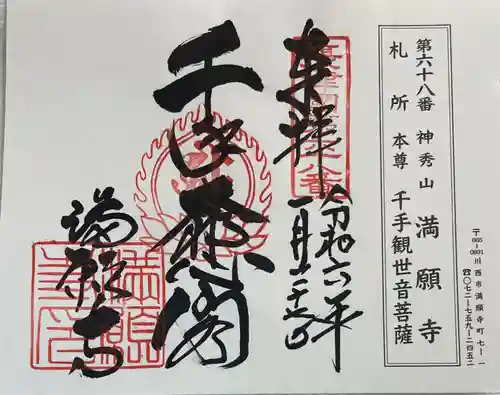 第六十八番 神秀山 満願寺
札所本尊 千手観世音菩薩
〒665-0891 川西市満願寺町七ー一
☎〇七二ー七五九ー二四五二
奉拝
令和六年
千手観音
満願寺